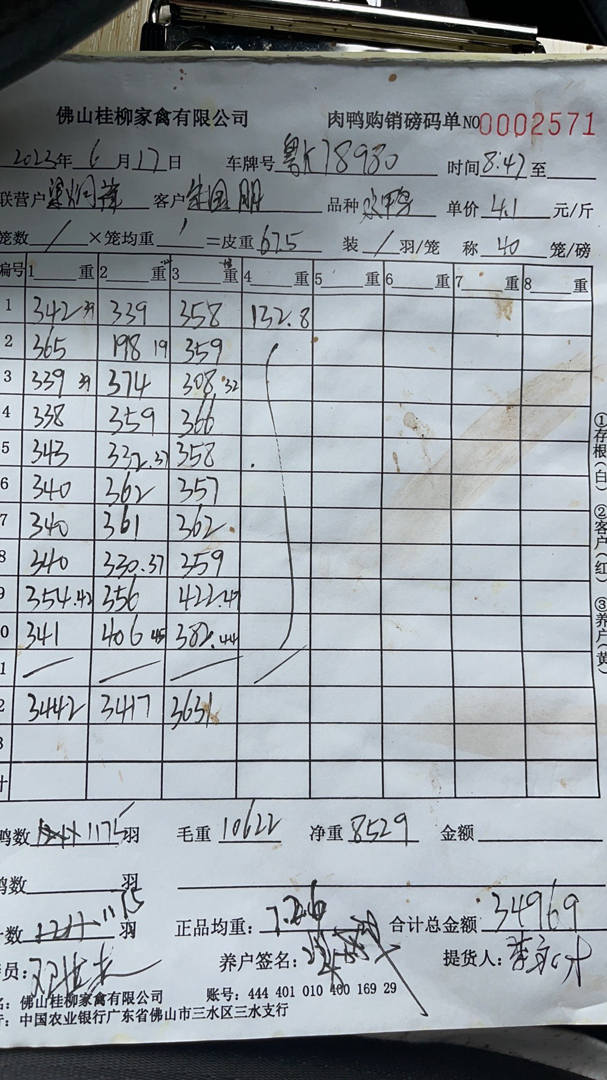 佛山桂柳家禽有限公司 肉鸭购销磅码单 NO 0002571
2023年 6 月 17 日 车牌号 粤K78930 时间 8:47 至
联营户 客户 朋 品种 水鸭 单价 4.1 元/斤
笼数 / ×笼均重 / =皮重 67.5 装 / 羽/笼 称 40 笼/磅
编号 1 重 2 重 3 重 4 重 5 重 6 重 7 重 8 重
1 342 39 339 358 132.8
2 365 198 19 359
3 339 39 374 308.32
4 338 359 366
5 343 332.37 358
6 340 362 357
7 340 361 362
8 340 330.37 359
9 354.42 356 422.47
0 341 406 45 382.44
1 / / / /
2 3442 3417 3631
3
计
鸭数 1175 羽 毛重 10622 净重 8529 金额
鸭数 羽
计数 1175 羽 正品均重: 7.26 合计总金额 34969
员: 养户签名: 提货人:
名: 佛山桂柳家禽有限公司 账号: 444 401 010 400 169 29
行: 中国农业银行广东省佛山市三水区三水支行
①存根(白) ②客户(红) ③养户(黄)